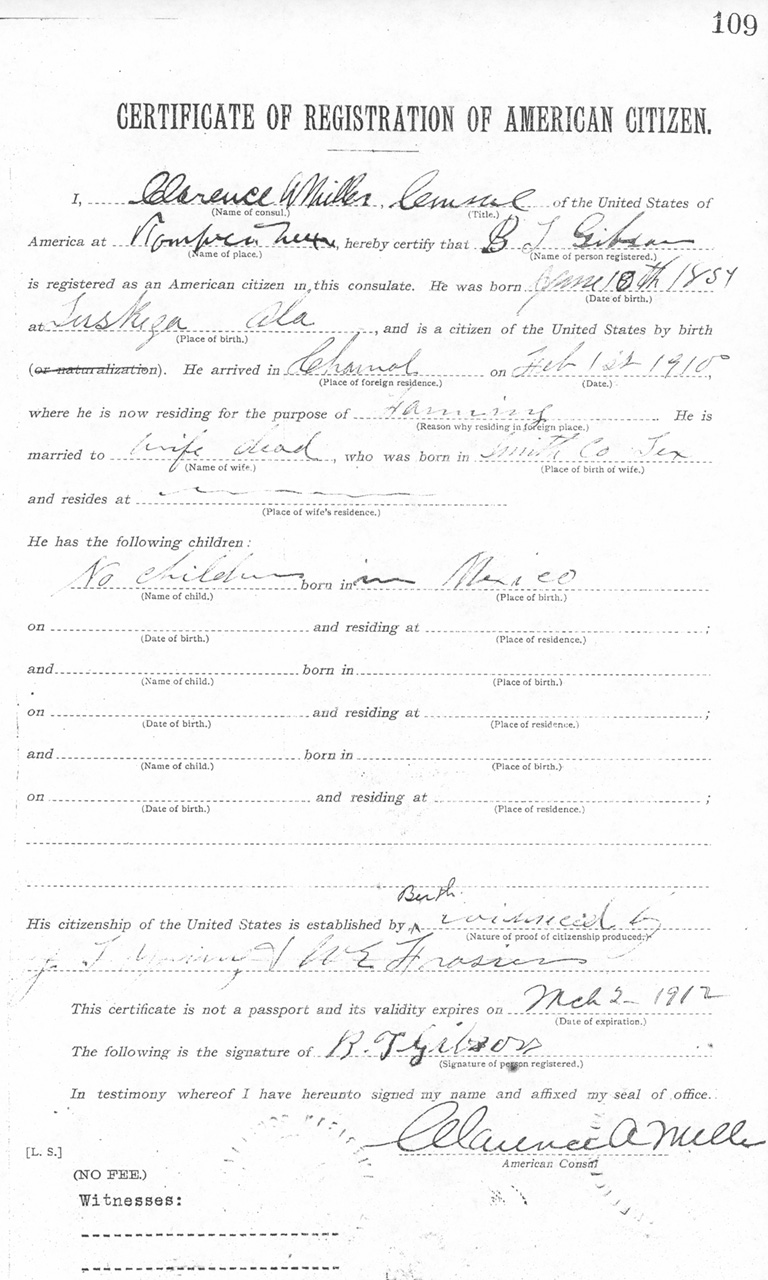 109
CERTIFICATE OF REGISTRATION OF AMERICAN CITIZEN.
I, Clarence A Miller, Consul of the United States of
(Name of consul.) (Title.)
America at , hereby certify that B T Gibson
(Name of place.) (Name of person registered.)
is registered as an American citizen in this consulate. He was born June 18th
(Date of birth.)
at Ala , and is a citizen of the United States by birth
(Place of birth.)
(or naturalization). He arrived in Chamal on Feb 1st 1910,
(Place of foreign residence.) (Date.)
where he is now residing for the purpose of Farming. He is
(Reason why residing in foreign place.)
married to wife dead, who was born in Smith Co Tex
(Name of wife.) (Place of birth of wife.)
and resides at
(Place of wife's residence.)
He has the following children:
No children born in in Mexico
(Name of child.) (Place of birth.)
on and residing at ;
(Date of birth.) (Place of residence.)
and born in
(Name of child.) (Place of birth.)
on and residing at ;
(Date of birth.) (Place of residence.)
and born in
(Name of child.) (Place of birth.)
on and residing at ;
(Date of birth.) (Place of residence.)
Birth
His citizenship of the United States is established by by
(Nature of proof of citizenship produced.)
T & W E
This certificate is not a passport and its validity expires on Mch 2 - 1912
(Date of expiration.)
The following is the signature of B. T Gibson
(Signature of person registered.)
In testimony whereof I have hereunto signed my name and affixed my seal of office.
Clarence A Miller
[L. S.] American Consul
(NO FEE.)
Witnesses: